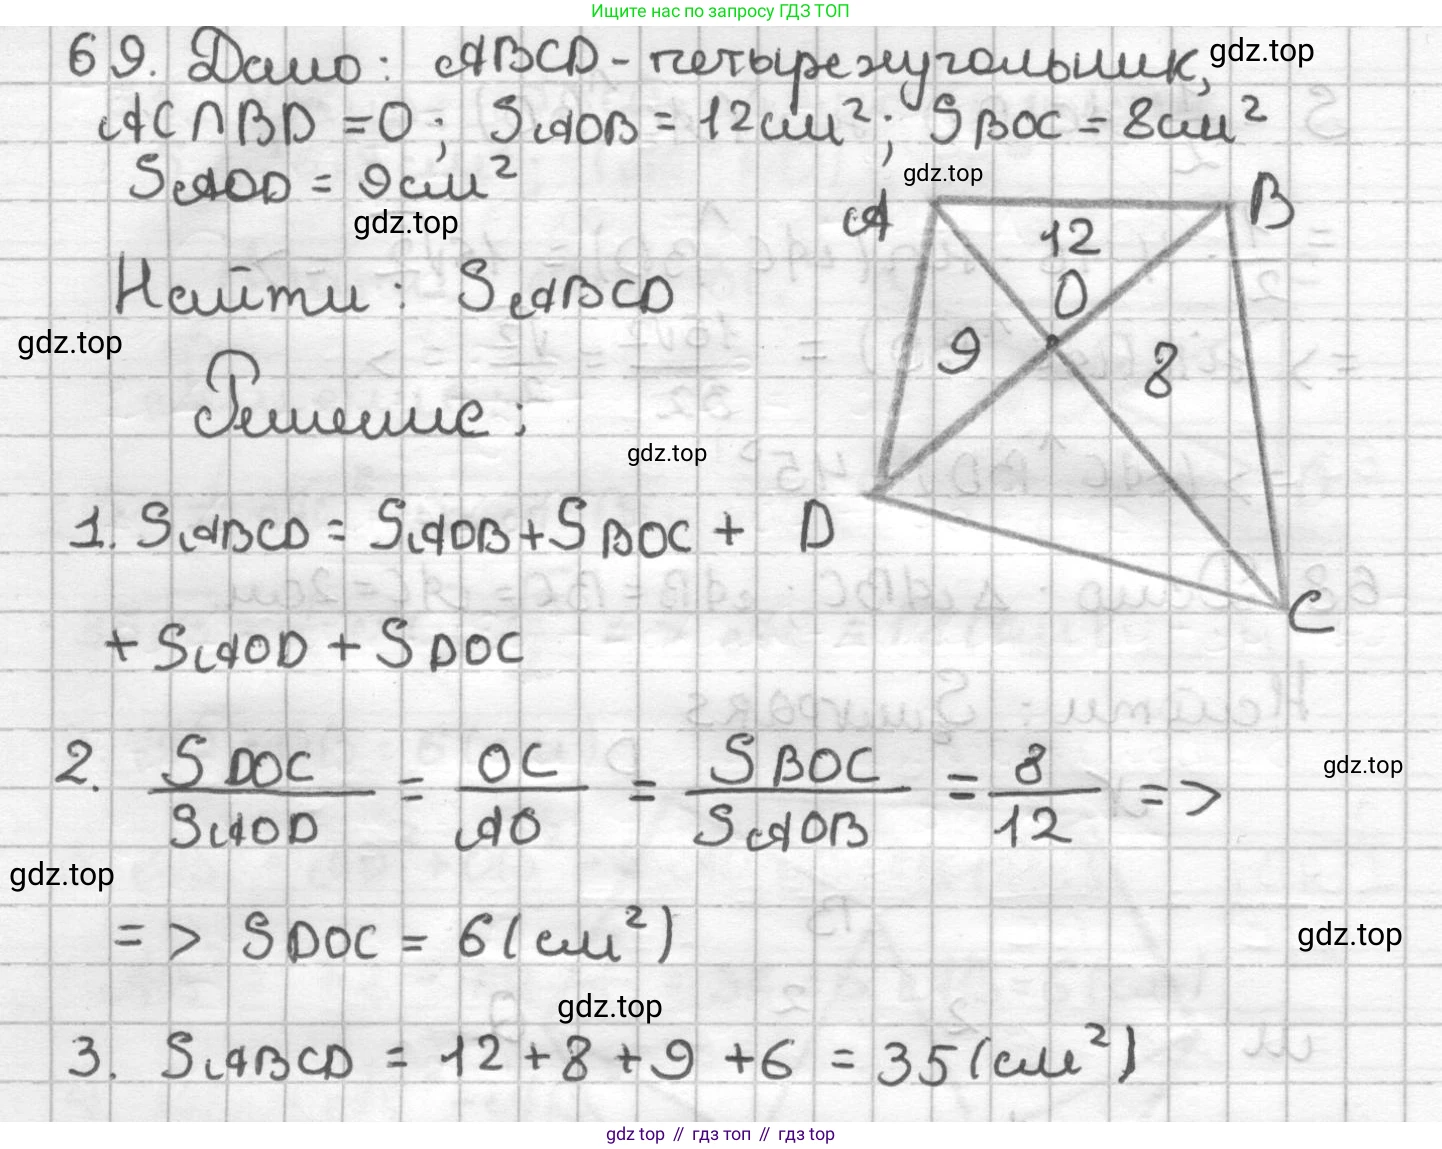 Ищите нас по запросу ГДЗ ТОП
69. Дано: ABCD - четырехугольник,
gdz.top
AC ∩ BD = O; SAOB = 12 см²; SBOC = 8 см²
SAOD = 9 см²
gdz.top
gdz.top
A
B
12
O
9
8
D
C
Найти: SABCD
gdz.top
Решение:
gdz.top
1. SABCD = SAOB + SBOC +
+ SAOD + SDOC
2. SDOC / SAOD = OC / AO = SBOC / SAOB = 8 / 12 =>
gdz.top
gdz.top
=> SDOC = 6 (см²)
gdz.top
gdz.top
3. SABCD = 12 + 8 + 9 + 6 = 35 (см²)
gdz top // гдз топ // gdz top